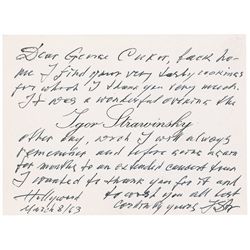 Dear George Cukor, back ho-
me I find your very tasty cookings
for which I thank you very much.
It was a wonderful evening the
Igor Strawinsky
other day, which I will always
remember and before going again
for months to an extended concert tour
I wanted to thank you for it and
Hollywood to wish you all best
March 8/63 Cordially yours IStr